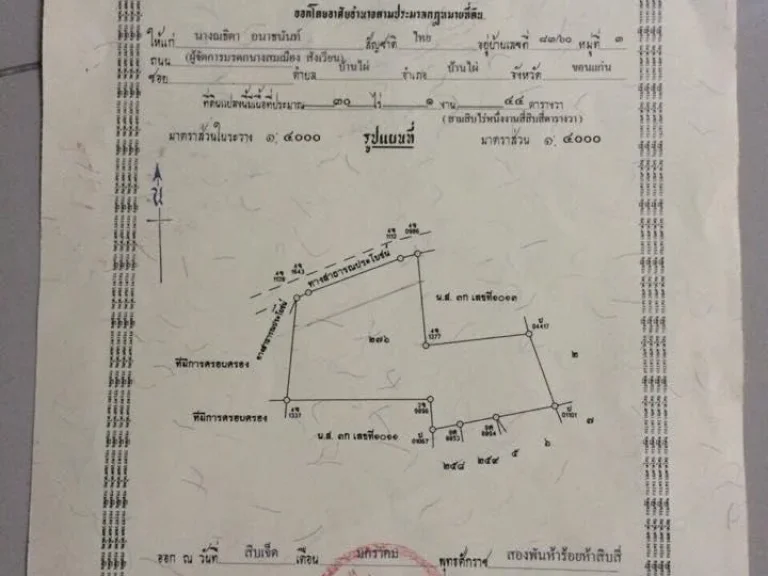 ออกโดยอาศัยอำนาจตามประมวลกฎหมายที่ดิน
ให้แก่ นางณธิดา ธนาธนันท์ สัญชาติ ไทย อยู่บ้านเลขที่ ๘๓/๖๐ หมู่ที่ ๓
ถนน (ผู้จัดการมรดกนางสมเมือง สังเวียน)
ซอย ตำบล บ้านไผ่ อำเภอ บ้านไผ่ จังหวัด ขอนแก่น
ที่ดินแปลงนี้มีเนื้อที่ประมาณ ๓๐ ไร่ ๑ งาน ๔๔ ตารางวา
(สามสิบไร่หนึ่งงานสี่สิบสี่ตารางวา)
มาตราส่วนในระวาง ๑: ๔๐๐๐ รูปแผนที่ มาตราส่วน ๑: ๔๐๐๐
น
ทางสาธารณประโยชน์
น.ส. ๓ก เลขที่๑๐๑๓
ทางสาธารณประโยชน์
๒๗๖
1377
04417
๒
ที่มีการครอบครอง
ที่มีการครอบครอง
1337
01101
๗
น.ส. ๓ก เลขที่๑๐๑๑
๖
๒๕๘ ๒๕๙ ๕
ออก ณ วันที่ สิบเจ็ด เดือน มกราคม พุทธศักราช สองพันห้าร้อยห้าสิบสี่